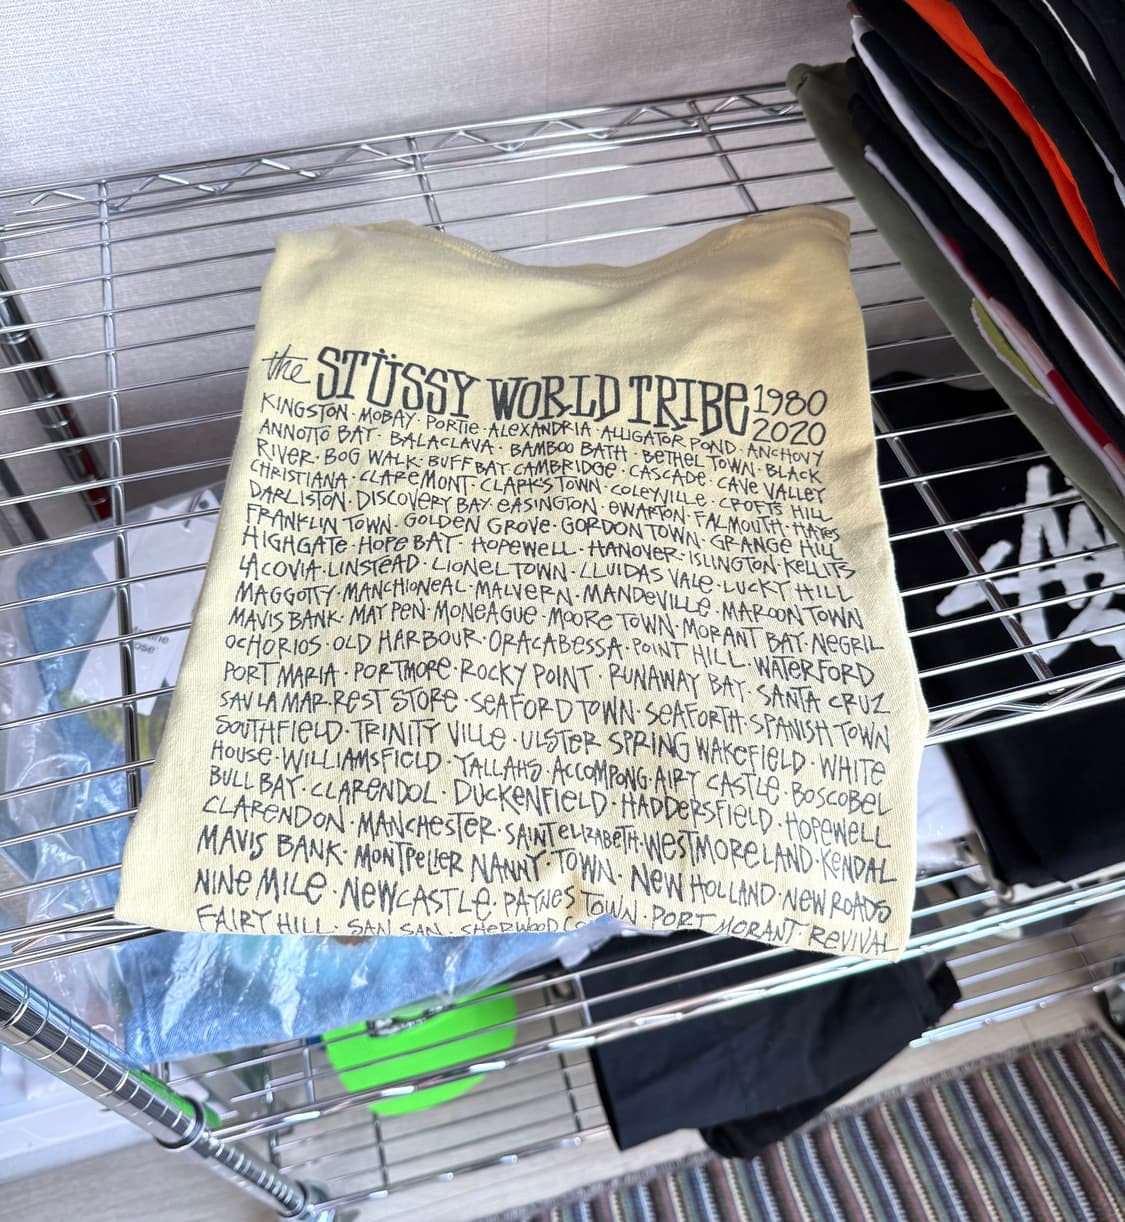 the STÜSSY WORLD TRIBE 1980
2020
KINGSTON · MOBAY · PORTIE · ALEXANDRIA · ALLIGATOR POND · ANCHOVY
ANNOTTO BAY · BALACLAVA · BAMBOO BATH · BETHEL TOWN · BLACK
RIVER · BOG WALK · BUFF BAY CAMBRIDGE · CASCADE · CAVE VALLEY
CHRISTIANA · CLAREMONT · CLARKS TOWN · COLEYVILLE · CROFTS HILL
DARLISTON · DISCOVERY BAY · EASINGTON · EWARTON · FALMOUTH · HAYES
FRANKLIN TOWN · GOLDEN GROVE · GORDON TOWN · GRANGE HILL
HIGHGATE · HOPE BAY · HOPEWELL · HANOVER · ISLINGTON · KELLITS
LACOVIA · LINSTEAD · LIONEL TOWN · LLUIDAS VALE · LUCKY HILL
MAGGOTTY · MANCHIONEAL · MALVERN · MANDEVILLE · MAROON TOWN
MAVIS BANK · MAY PEN · MONEAGUE · MOORE TOWN · MORANT BAY · NEGRIL
OCHORIOS · OLD HARBOUR · ORACABESSA · POINT HILL · WATERFORD
PORT MARIA · PORTMORE · ROCKY POINT · RUNAWAY BAY · SANTA CRUZ
SAV LA MAR · REST STORE · SEAFORD TOWN · SEAFORTH · SPANISH TOWN
SOUTHFIELD · TRINITY VILLE · ULSTER SPRING WAKEFIELD · WHITE
HOUSE · WILLIAMSFIELD · YALLAHS · ACCOMPONG · AIRY CASTLE · BOSCOBEL
BULL BAY · CLARENDOL · DUCKENFIELD · HADDERSFIELD · HOPEWELL
CLARENDON · MANCHESTER · SAINT ELIZABETH · WESTMORELAND · KENDAL
MAVIS BANK · MONTPELIER NANNY · TOWN · NEW HOLLAND · NEW ROADS
NINE MILE · NEWCASTLE · PAYNES TOWN · PORT MORANT · REVIVAL
FAIRY HILL · SAN SAN · SHERWOOD